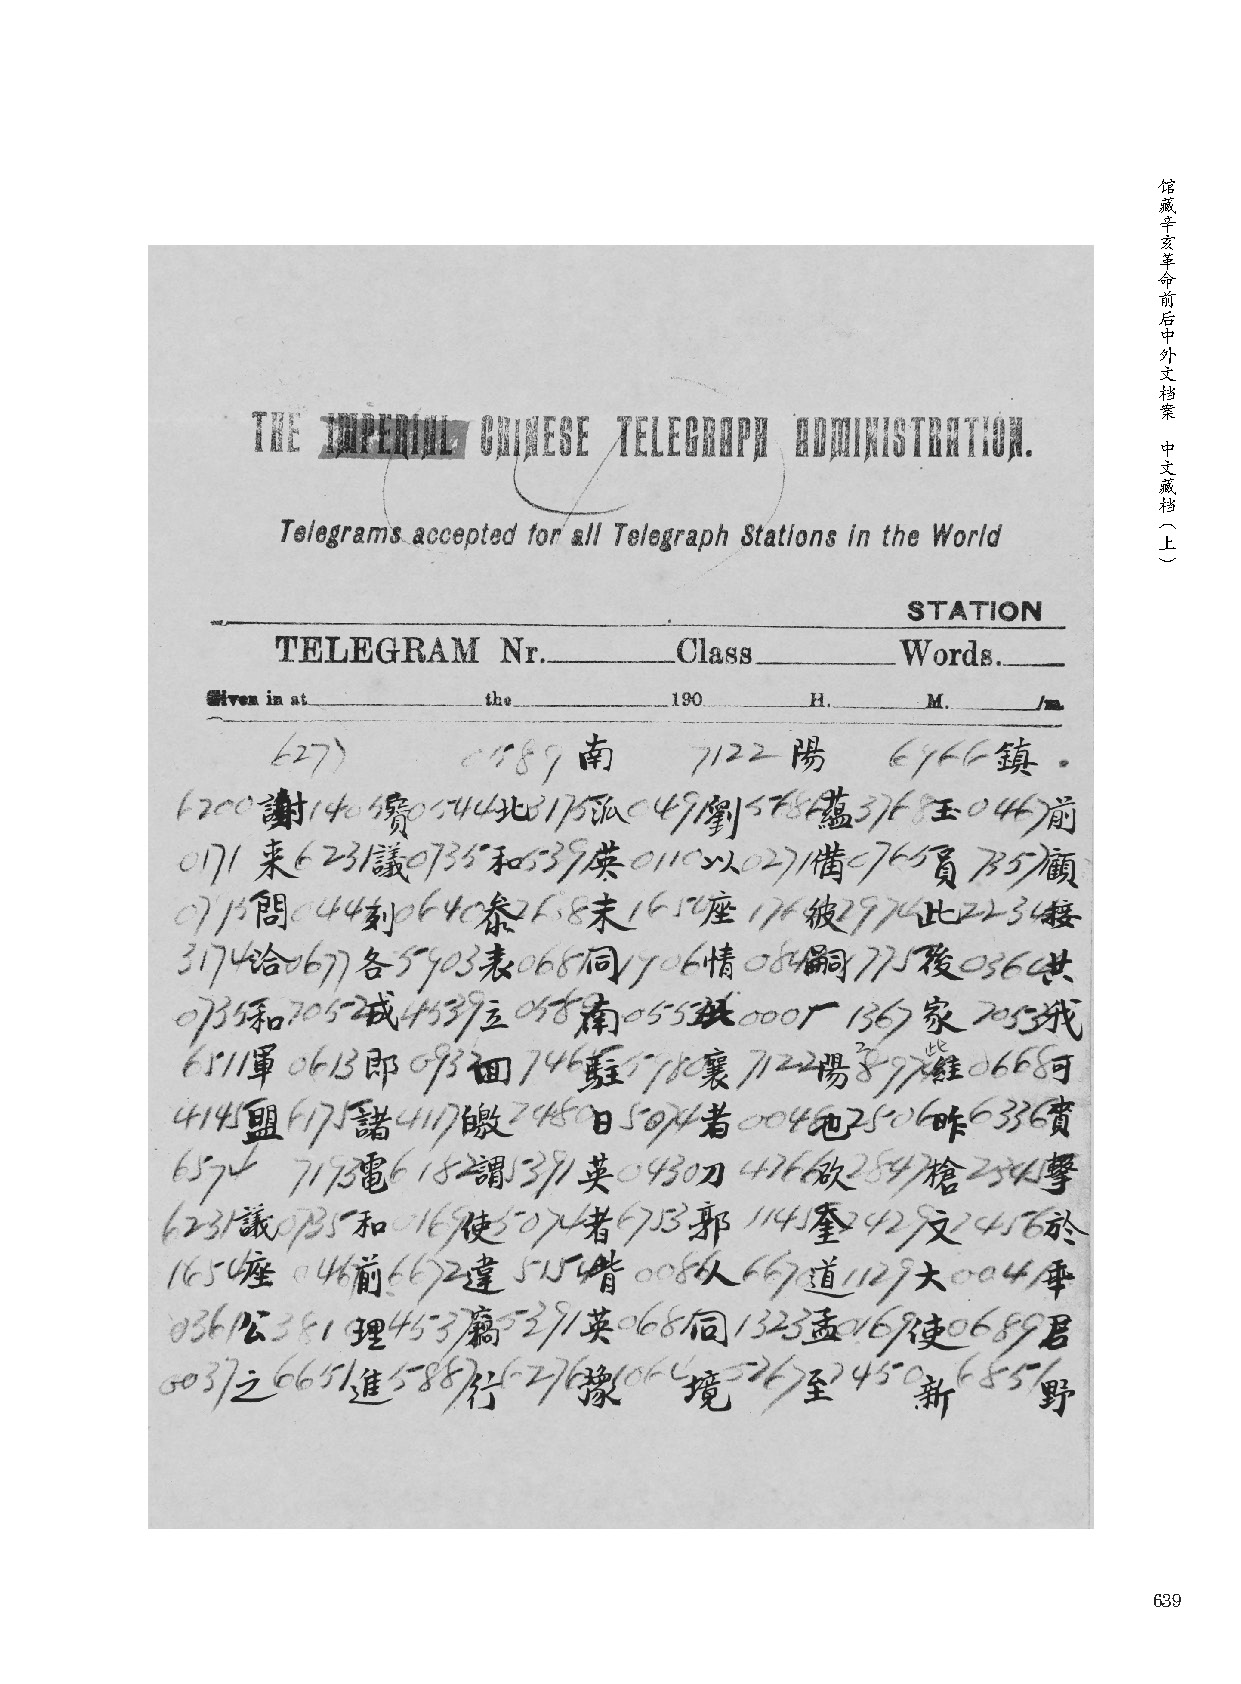 馆藏辛亥革命前后中外文档案 中文藏档（上）
THE IMPERIAL CHINESE TELEGRAPH ADMINISTRATION.
Telegrams accepted for all Telegraph Stations in the World
STATION
TELEGRAM Nr. Class Words.
Given in at the 190 H. M. /m.
627 0589 南 7122 陽 6966 鎮
6200 謝 1405 寳 0544 北 3175 泒 0491 劉 5686 蘊 3768 玉 0467 前
0171 来 6231 議 0735 和 5391 英 0110 以 0271 備 0765 員 7357 顧
問 0441 刻 0640 叅 2608 未 1654 座 1764 彼 2974 此 2234 接
3174 洽 0677 各 5903 表 0681 同 1906 情 嗣 1775 後 0364 共
0735 和 7052 成 4539 立 0589 南 0553 0001 厂 1367 家 7053 我
6511 軍 0613 即 0932 回 7465 駐 5980 襄 7122 陽 維 此 0668 可
4145 盟 6175 諸 4117 皦 2480 日 5074 者 0046 也 2506 昨 6336 賁
6574 7193 電 6182 謂 5391 英 0430 刀 4766 欲 2847 槍 2845 擊
6231 議 0735 和 0169 使 5074 者 6753 郭 1145 奎 2429 文 2456 於
1654 座 0467 前 6672 違 5154 背 0086 人 6670 道 1129 大 0041 乖
0361 公 3810 理 4537 竊 5391 英 0681 同 1323 孟 0169 使 0689 君
0037 之 6651 進 5887 行 6276 豫 1064 境 5267 至 2450 新 6851 野
639